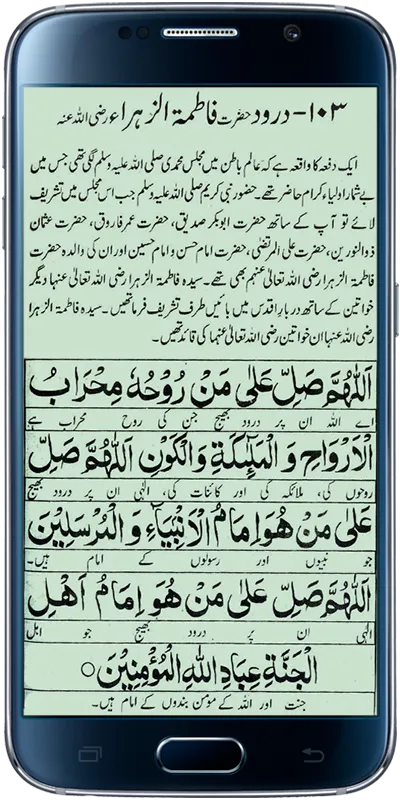 ۱۰۳- درود حضرت فاطمۃ الزہراء رضی اللہ عنہ
ایک دفعہ کا واقعہ ہے کہ عالم باطن میں مجلس محمدی صلی اللہ علیہ وسلم لگی تھی جس میں
بے شمار اولیاء کرام حاضر تھے۔ حضور نبی کریم صلی اللہ علیہ وسلم جب اس مجلس میں تشریف
لائے تو آپ کے ساتھ حضرت ابوبکر صدیق، حضرت عمر فاروق، حضرت عثمان
ذوالنورین، حضرت علی المرتضیٰ، حضرت امام حسن و امام حسین اور ان کی والدہ حضرت
فاطمۃ الزہرا رضی اللہ تعالیٰ عنہم بھی تھے۔ سیدہ فاطمۃ الزہرا رضی اللہ تعالیٰ عنہا دیگر
خواتین کے ساتھ دربار اقدس میں بائیں طرف تشریف فرما تھیں۔ سیدہ فاطمۃ الزہرا
رضی اللہ عنہا ان خواتین رضی اللہ تعالیٰ عنہما کی قائد تھیں۔
اَللّٰهُمَّ صَلِّ عَلٰى مَنْ رُوْحُهٗ مِحْرَابُ
اے اللہ ان پر درود بھیج جن کی روح محراب ہے
الْاَرْوَاحِ وَالْمَلٰٓئِكَةِ وَالْكَوْنِ اَللّٰهُمَّ صَلِّ
روحوں کی، ملائکہ کی اور کائنات کی، الٰہی ان پر درود بھیج
عَلٰى مَنْ هُوَ اِمَامُ الْاَنْبِيَآءِ وَالْمُرْسَلِيْنَ
جو نبیوں اور رسولوں کے امام ہیں۔
اَللّٰهُمَّ صَلِّ عَلٰى مَنْ هُوَ اِمَامُ اَهْلِ
الٰہی ان پر درود بھیج جو اہل
الْجَنَّةِ عِبَادِ اللّٰهِ الْمُؤْمِنِيْنَ ○
جنت اور اللہ کے مومن بندوں کے امام ہیں۔